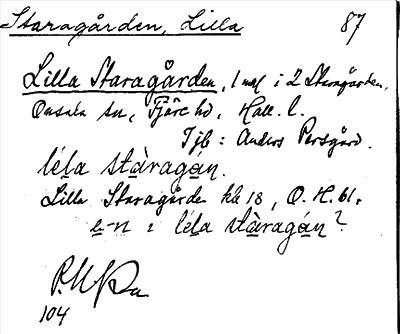 Staragården, Lilla 87
Lilla Staragården, 1 mtl i 2 Staragården,
Onsala sn, Fjäre hd, Hall. l.
Tjb: Anders Persgård.
léla stàragán.
Lilla Staragården kla 18, O. H. bl.
e-n: léla stàragán?
104